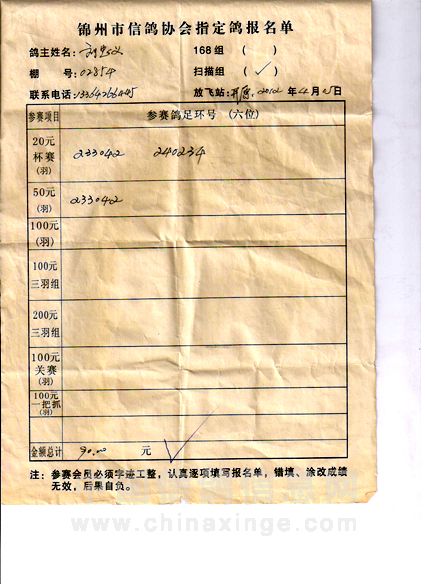 锦州市信鸽协会指定鸽报名单
鸽主姓名： 168组 （ ）
棚 号：02854 扫描组 （✓）
联系电话： 放飞站： 2012 年 4 月 日
参赛项目 参赛鸽足环号 （六位）
20元
杯赛
(羽)
233042 240234
50元
(羽)
233042
100元
(羽)
100元
三羽组
200元
三羽组
100元
关赛
(羽)
100元
一把抓
(羽)
金额总计 90.00 元
注：参赛会员必须字迹工整，认真逐项填写报名单，错填、涂改成绩
无效，后果自负。
www.chinaxinge.com